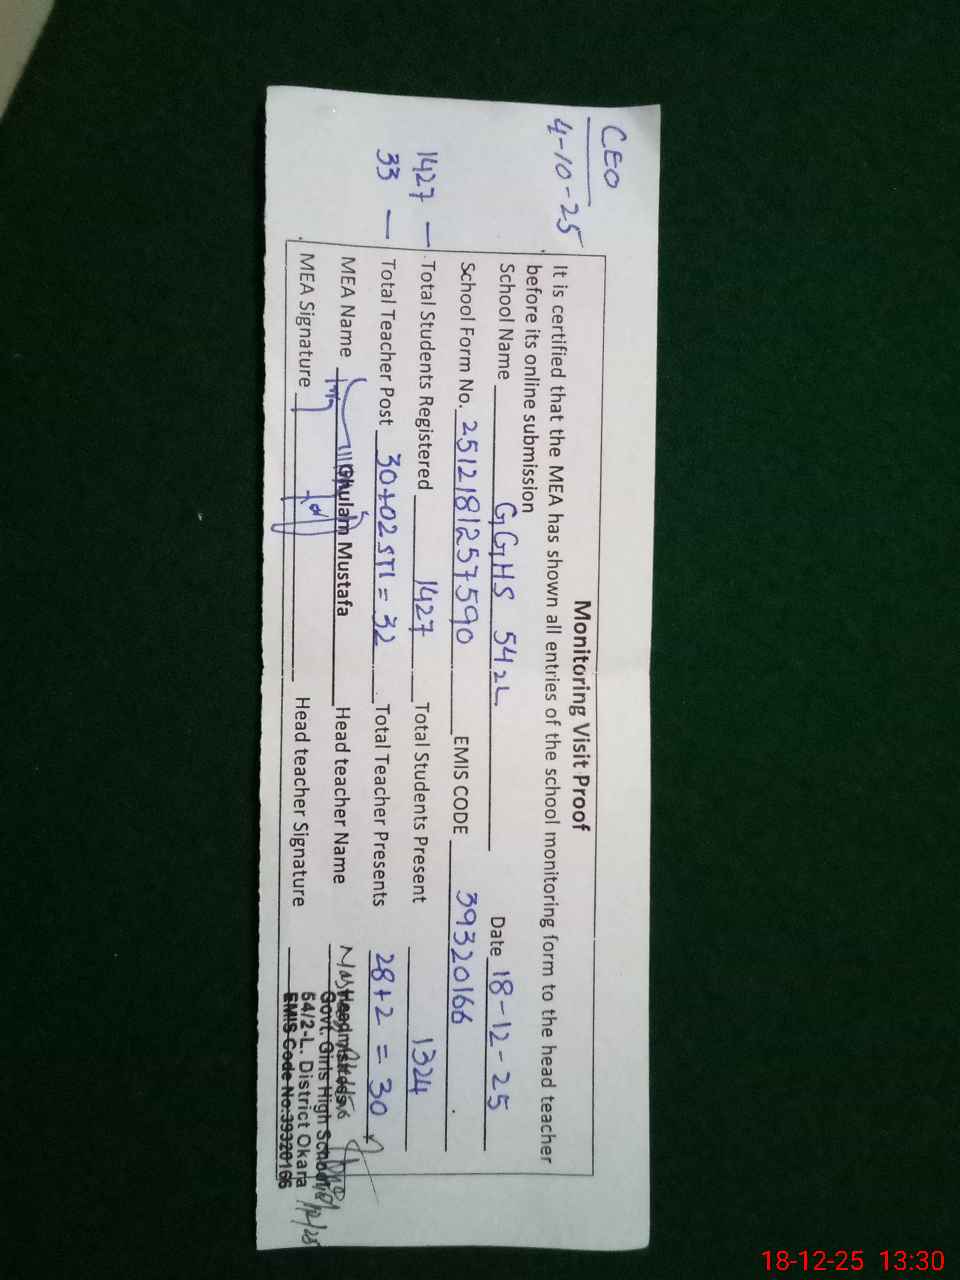 CEO
4-10-25
Monitoring Visit Proof
It is certified that the MEA has shown all entries of the school monitoring form to the head teacher
before its online submission
School Name GGHS 54 2L Date 18-12-25
School Form No. 251218125 7590 EMIS CODE 39320166
1427 — Total Students Registered 1427 Total Students Present 1324
33 — Total Teacher Post 30+02 STI = 32 Total Teacher Presents 28+2 = 30
MEA Name Ghulam Mustafa Head teacher Name
MEA Signature Head teacher Signature
Headmistress
Govt. Girls High School
54/2-L. District Okara
EMIS Code No:39320166
18-12-25 13:30